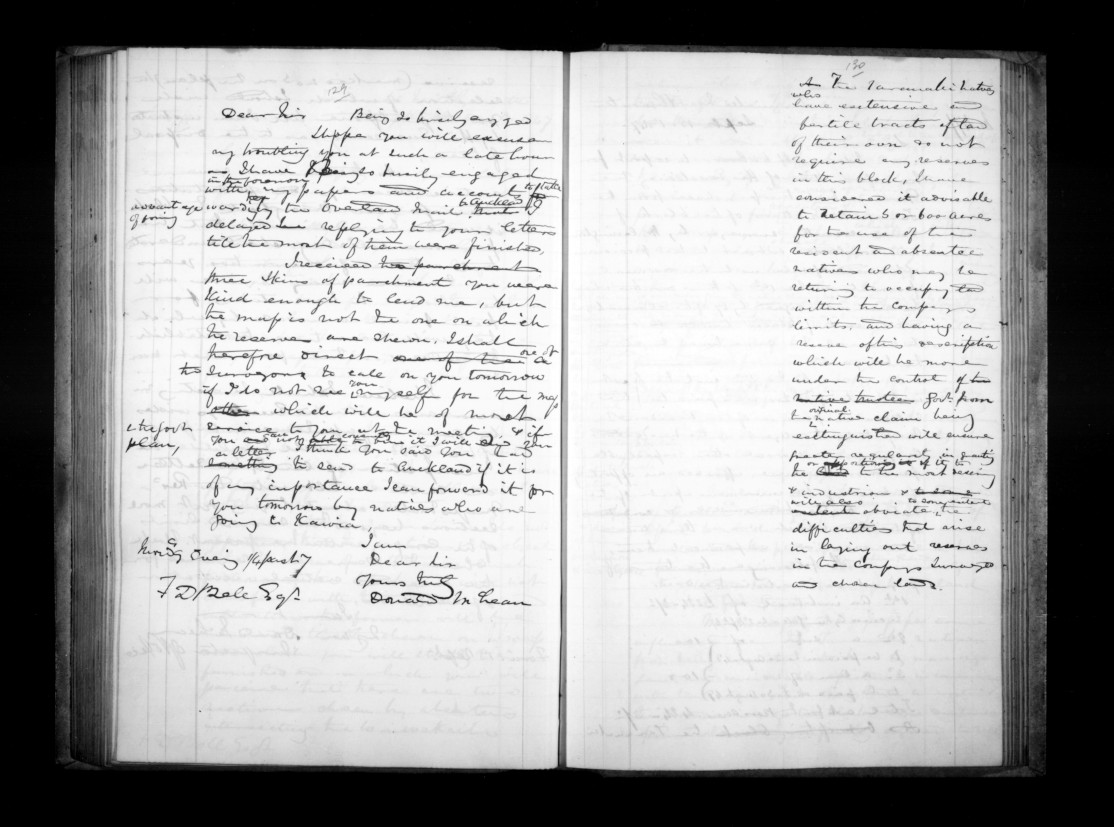 129
Dear Sir Being so busily engaged
I hope you will excuse
my troubling you at such a late hour
as I have being so busily engaged
in the forenoon
with my papers and accounts to take
advantage
of going
wardg the Overland Mail to Auckland
delayed replying to your letters
till the most of them were finished,
I received the parchment
three skins of parchment you were
kind enough to lend me, but
the map is not the one on which
the reserves are shewn, I shall
therefore direct one of the
one of
the Surveyors to call on you tomorrow
if I do not see you myself for the map
other which will be of most
service to you at the meeting & if
& the for h
plan,
you can not it I will you
a letter I think you said you had
something to send to Auckland if it is
of any importance I can forward it for
you tomorrow by natives who are
going to Kawia,
I am
Dear Sir
Yours truly
Donald McLean
Evening 1/4 past 7
F D Bell Esqr
130
As The Taranaki Natives
who
have extensive and
fertile tracts of land
of their own do not
require any reserves
in this block, I have
considered it advisable
to retain 5 or 600 acres
for the use of the
resident and absentee
natives who may be
returning to occupy land
within the Companys
limits. and having a
reserve of this description
which will be more
under the control of the
native trustees Govt. from
the native claims being
original
extinguished will ensure
greater regularity in
the to the most deserving
& industrious &
will also to a considerable
extent obviate, the
difficulties that arise
in laying out reserves
in the Companys surveyed
and chosen lands.